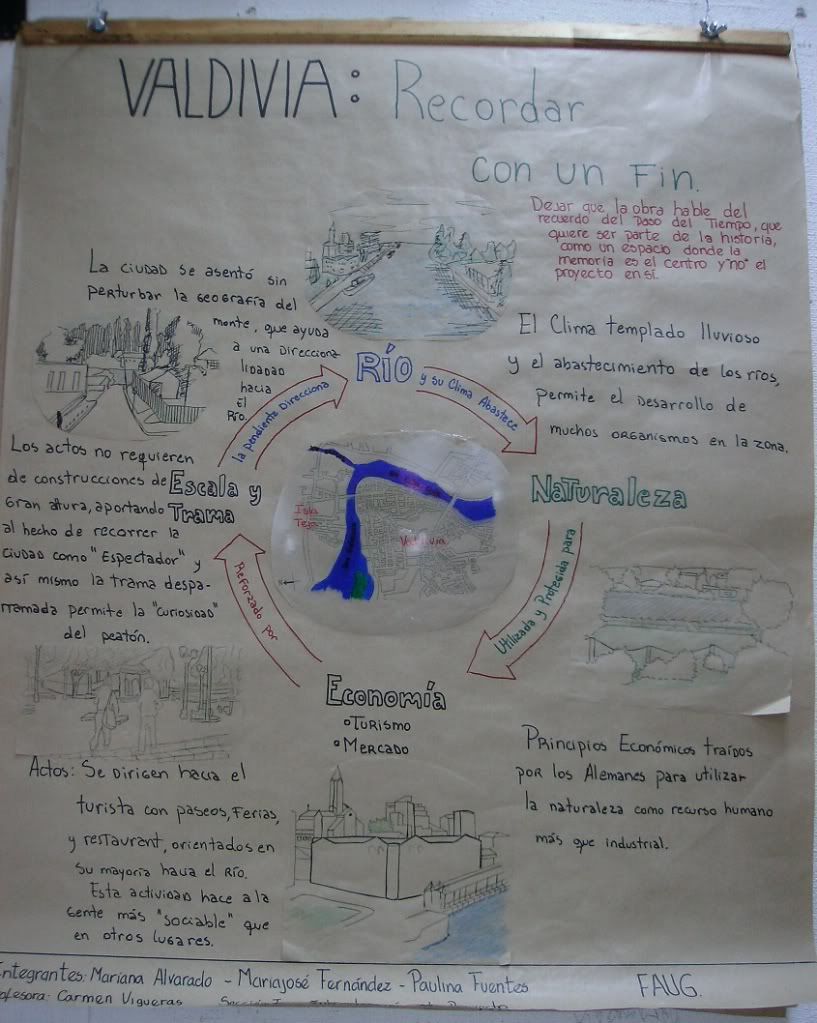 VALDIVIA: Recordar
con un Fin.
Dejar que la obra hable del
recuerdo del Paso del Tiempo, que
quiere ser parte de la historia,
como un espacio donde la
memoria es el centro y no el
proyecto en sí.
La ciudad se asentó sin
perturbar la geografía del
monte, que ayuda
a una Direcciona
lidadad
hacia
El
Río.
RÍO
y su Clima Abastece
la pendiente Direcciona
El Clima templado lluvioso
y el abastecimiento de los ríos,
permite el Desarrollo de
muchos organismos en la zona.
Naturaleza
Los actos no requieren
de construcciones de
Gran altura, aportando
al hecho de recorrer la
ciudad como "Espectador" y
así mismo la trama despa-
rramada permite la "curiosidad"
del peatón.
Escala y
Trama
Isla
Teja
Valdivia
Utilizada y Protegida para
Reforzado por
Economía
Turismo
Mercado
Principios Económicos traídos
por los Alemanes para utilizar
la naturaleza como recurso humano
más que industrial.
Actos: Se dirigen hacia el
turista con paseos, Ferias,
y restaurant, orientados en
su mayoría hacia el Río.
Esta actividad hace a la
Gente más "sociable" que
en otros lugares.
Integrantes: Mariana Alvarado - Mariajosé Fernández - Paulina Fuentes
FAUG.
Profesora: Carmen Vigueras